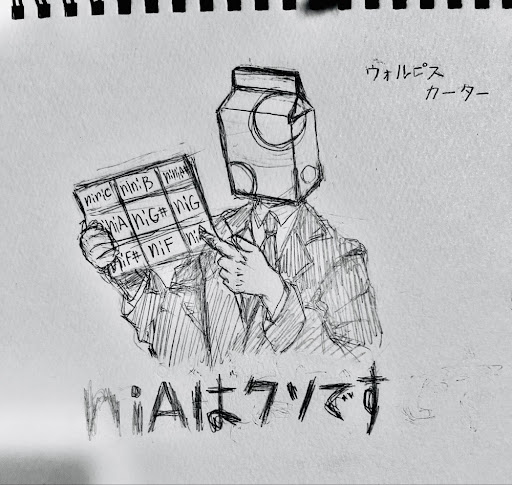 ウォルピス
カーター
niniC niniB niniA#
niA niG# niG
niF# niF ni
niAはクソです